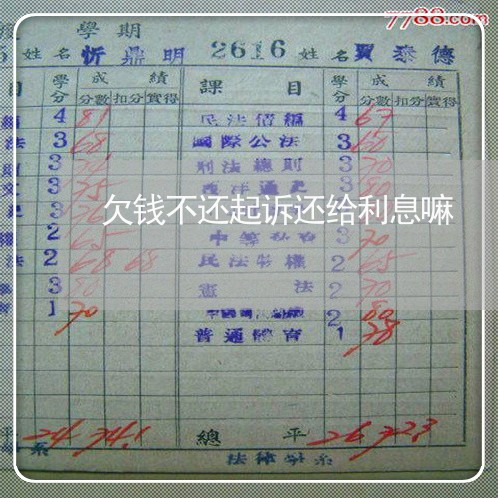 7788.com
學期
5 姓名 忻鼎明 2616 姓名 賈泰德
目 學分 成績 分數 扣分 實得 課目 學分 成績 分數 扣分 實得
4 81 民法債編 4 67
法 3 68 國際公法 3 60
3 刑法總則 3 70
3 75 西洋通史 3 80
欠钱不还起诉还给利息嘛
2 65 3 70
法 2 68 68 民法物權 2 65
3 80 憲法 2 70
1 70 2 80
普通體育 1 78
平 24 74.1 總平 26 72.3
系 法律學系